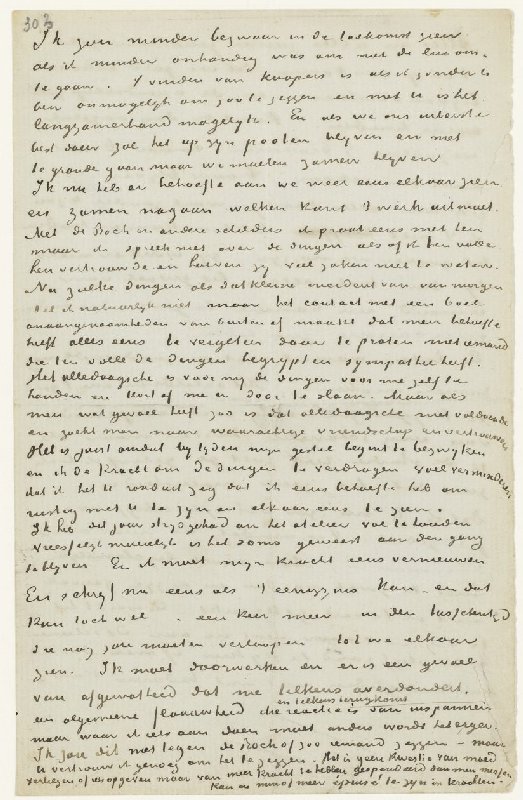 303
Ik zou minder bezwaar in de toekomst zien
als ik minder onhandig was om met de lui om
te gaan. 't vinden van koopers is als ik zonder U
ben onmogelijk om zoo te zeggen en met U is het
langzamerhand mogelijk. En als we ons uiterste
best doen zal het op zijn pooten blijven en niet
te gronde gaan maar we moeten zamen blijven
Ik nu heb er behoefte aan we weer eens elkaar zien
en zamen nagaan welken kant 't werk uitmoet.
Met de Bock en andere schilders ik praat eens met hen
maar ik spreek niet over de dingen als of ik hen volle
hen vertrouwde en hoeven zij veel zaken niet te weten.
Nu zulke dingen als dat kleine incident van van morgen
natuurlijk niet maar het contact met een boel
onaangenaamheden van buiten af maakt dat men behoefte
heeft alles eens te vergeten door te praten met iemand
die ten volle de dingen begrijpt en sympathie heeft.
Het alledaagsche is voor mij de dingen voor me zelf te
houden en me er door te slaan. Maar als
men wat gevoel heeft zoo is dat alledaagsche niet voldoende
en zoekt men naar waarachtige vriendschap en vertrouwen
Het is juist omdat bij tijden mijn gestel begint te bezwijken
en ik de kracht om de dingen te verdragen voel verminderen
dat ik het te ronduit zeg dat ik eens behoefte heb om
rustig met U te zijn en elkaar eens te zien.
Ik heb dit jaar strijd gehad om het atelier vol te houden
vreesselijk moeielijk is het soms geweest aan den gang
te blijven En ik moet mijn kracht eens vernieuwen
En schrijf nu eens als 't eenigzins kan en dat
kan toch wel een keer meer in den tusschentijd
die nog zou moeten verloopen tot we elkaar
zien. Ik moet doorwerken en er is een gevoel
van afgematheid dat me telkens overdondert,
een algemeene flaauwheid en telkens terugkomt die reactie is van inspannen
maar waar ik iets aan doen moet anders wordt het erger.
Ik zou dit niet tegen de Bock of zoo iemand zeggen – maar
U vertrouw ik genoeg om het te zeggen. Het is geen kwestie van moed
verliezen of iets opgeven maar van meer kracht te hebben gespendeerd dan men missen
kan en min of meer epuisé te zijn in krachten.